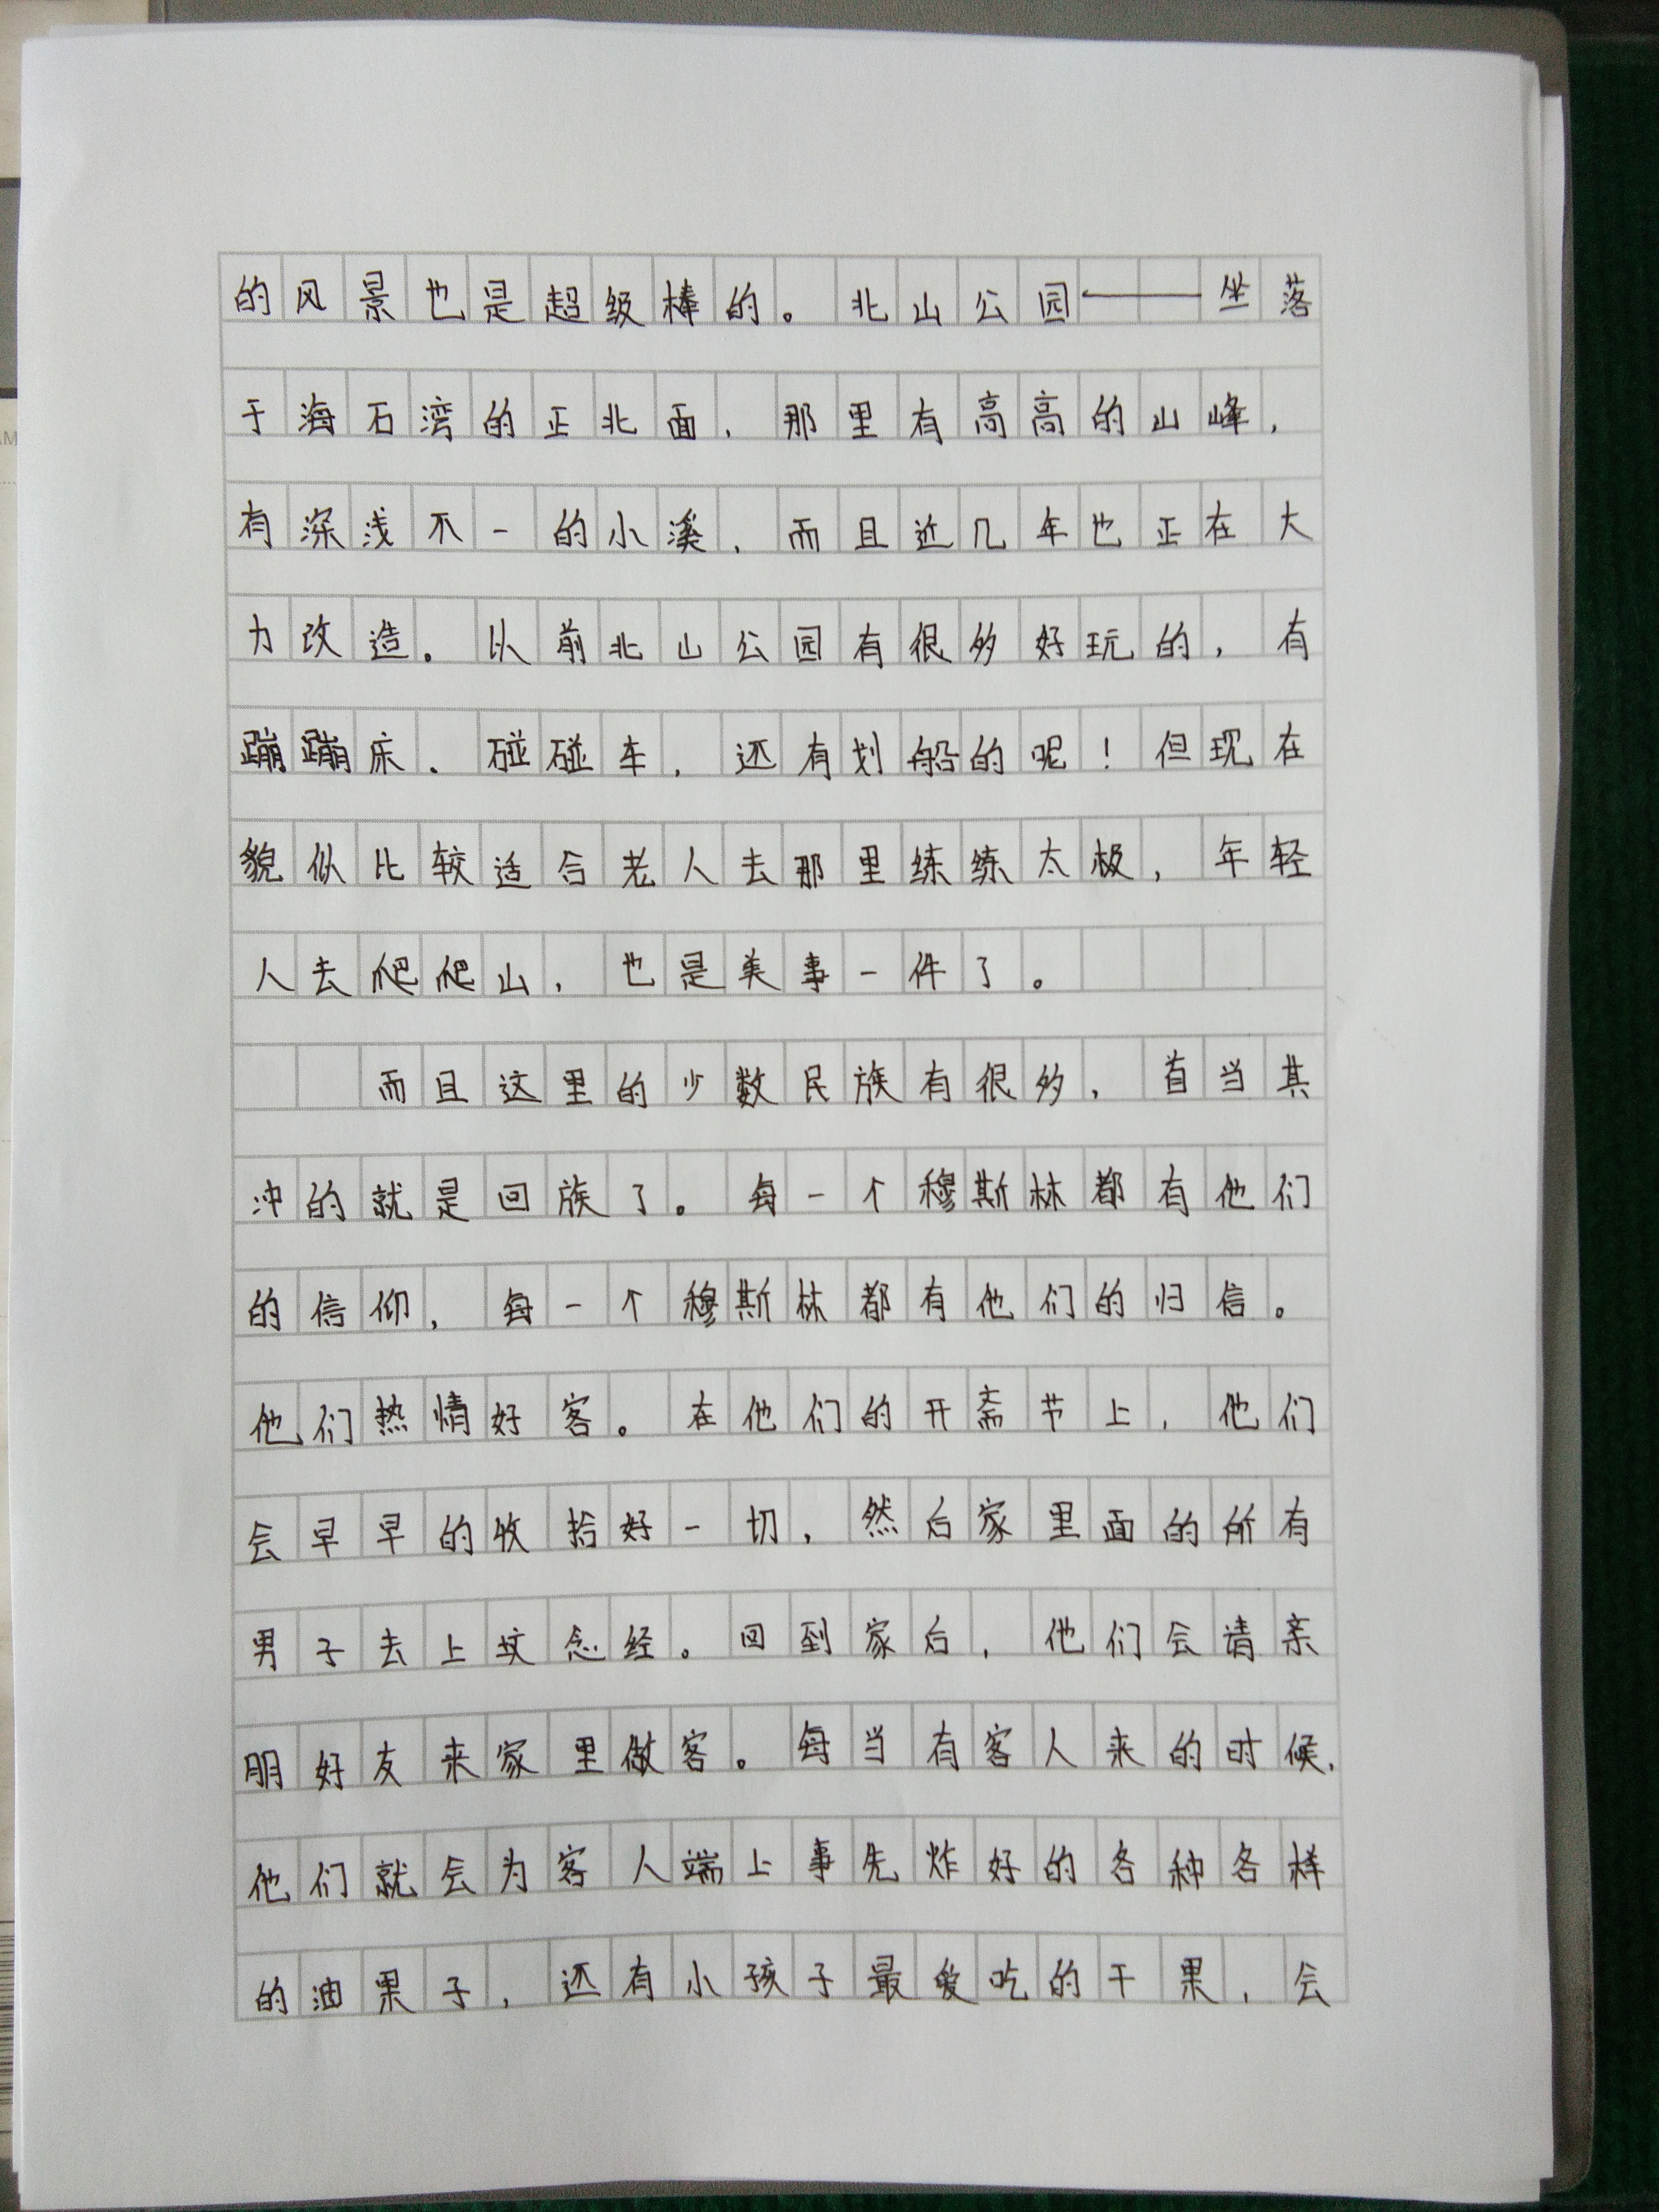 的风景也是超级棒的。北山公园——坐落
于海石湾的正北面，那里有高高的山峰，
有深浅不一的小溪，而且近几年也正在大
力改造。以前北山公园有很多好玩的，有
蹦蹦床、碰碰车，还有划船的呢！但现在
貌似比较适合老人去那里练练太极，年轻
人去爬爬山，也是美事一件了。
而且这里的少数民族有很多，首当其
冲的就是回族了。每一个穆斯林都有他们
的信仰，每一个穆斯林都有他们的归信。
他们热情好客。在他们的开斋节上，他们
会早早的收拾好一切，然后家里面的所有
男子去上坟念经。回到家后，他们会请亲
朋好友来家里做客。每当有客人来的时候，
他们就会为客人端上事先炸好的各种各样
的油果子，还有小孩子最爱吃的干果，会